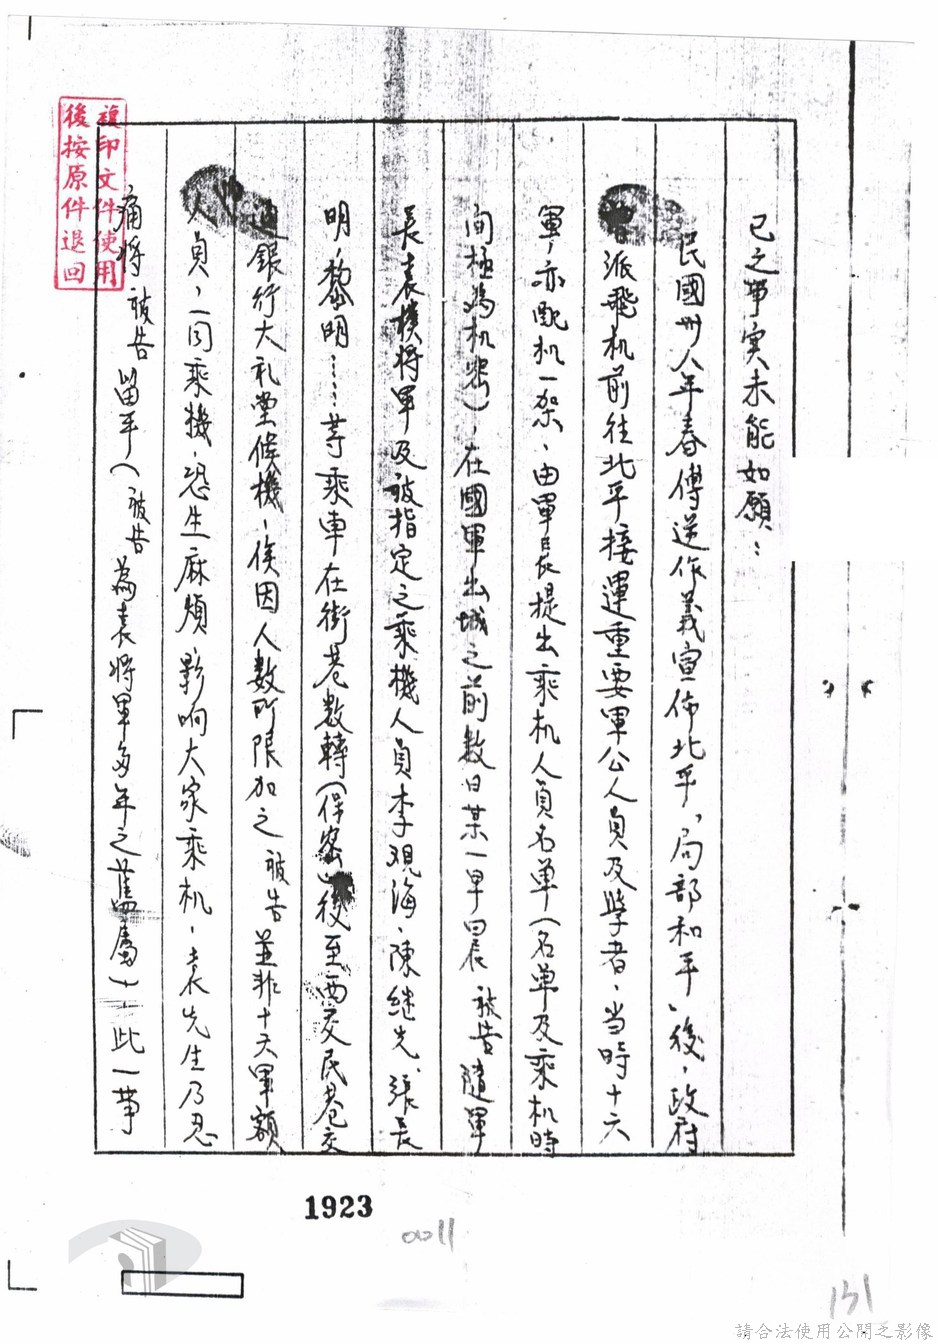 已之事实未能如願：
民國卅八年春傅逆作義宣佈北平「局部和平」後，政府
曾派飛机前往北平接運重要軍公人員及學者，当時十六
軍，亦配机一架，由軍長提出乘机人員名单（名单及乘机時
间極為机密），在國軍出城之前数日某一早晨 被告隨軍
長袁樸將軍及被指定之乘機人員李覌海、陳继先、張長
明、黎明……等乘車在街巷数轉（保密）後至西交民巷交
通銀行大礼堂候機，後因人数所限加之 被告並非十六軍額
人員，一同乘機，恐生麻煩影响大家乘机，袁先生乃忍
痛将 被告 留平（被告為袁將軍多年之舊屬），此一事
複印文件使用
後按原件退回
1923
0011
131
請合法使用公開之影像